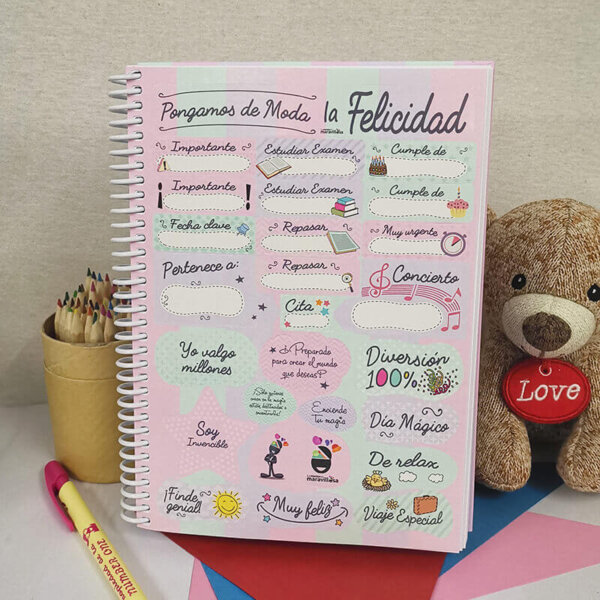 Pongamos de Moda la Felicidad
maravillosa
Importante
Estudiar Examen
Cumple de
Importante
Estudiar Examen
Cumple de
Fecha clave
Repasar
Muy urgente
Pertenece a:
Repasar
Concierto
Cita
Yo valgo
millones
¿Preparado
para crear el mundo
que deseas?
Diversión
100%
Sólo quienes
creen en la magia
están destinados a
encontrarla!
Enciende
Tu magia
Soy
Invencible
Día Mágico
maravillosa
De relax
¡Finde
genial!
Muy feliz
Viaje Especial
Love
NUMBER ONE